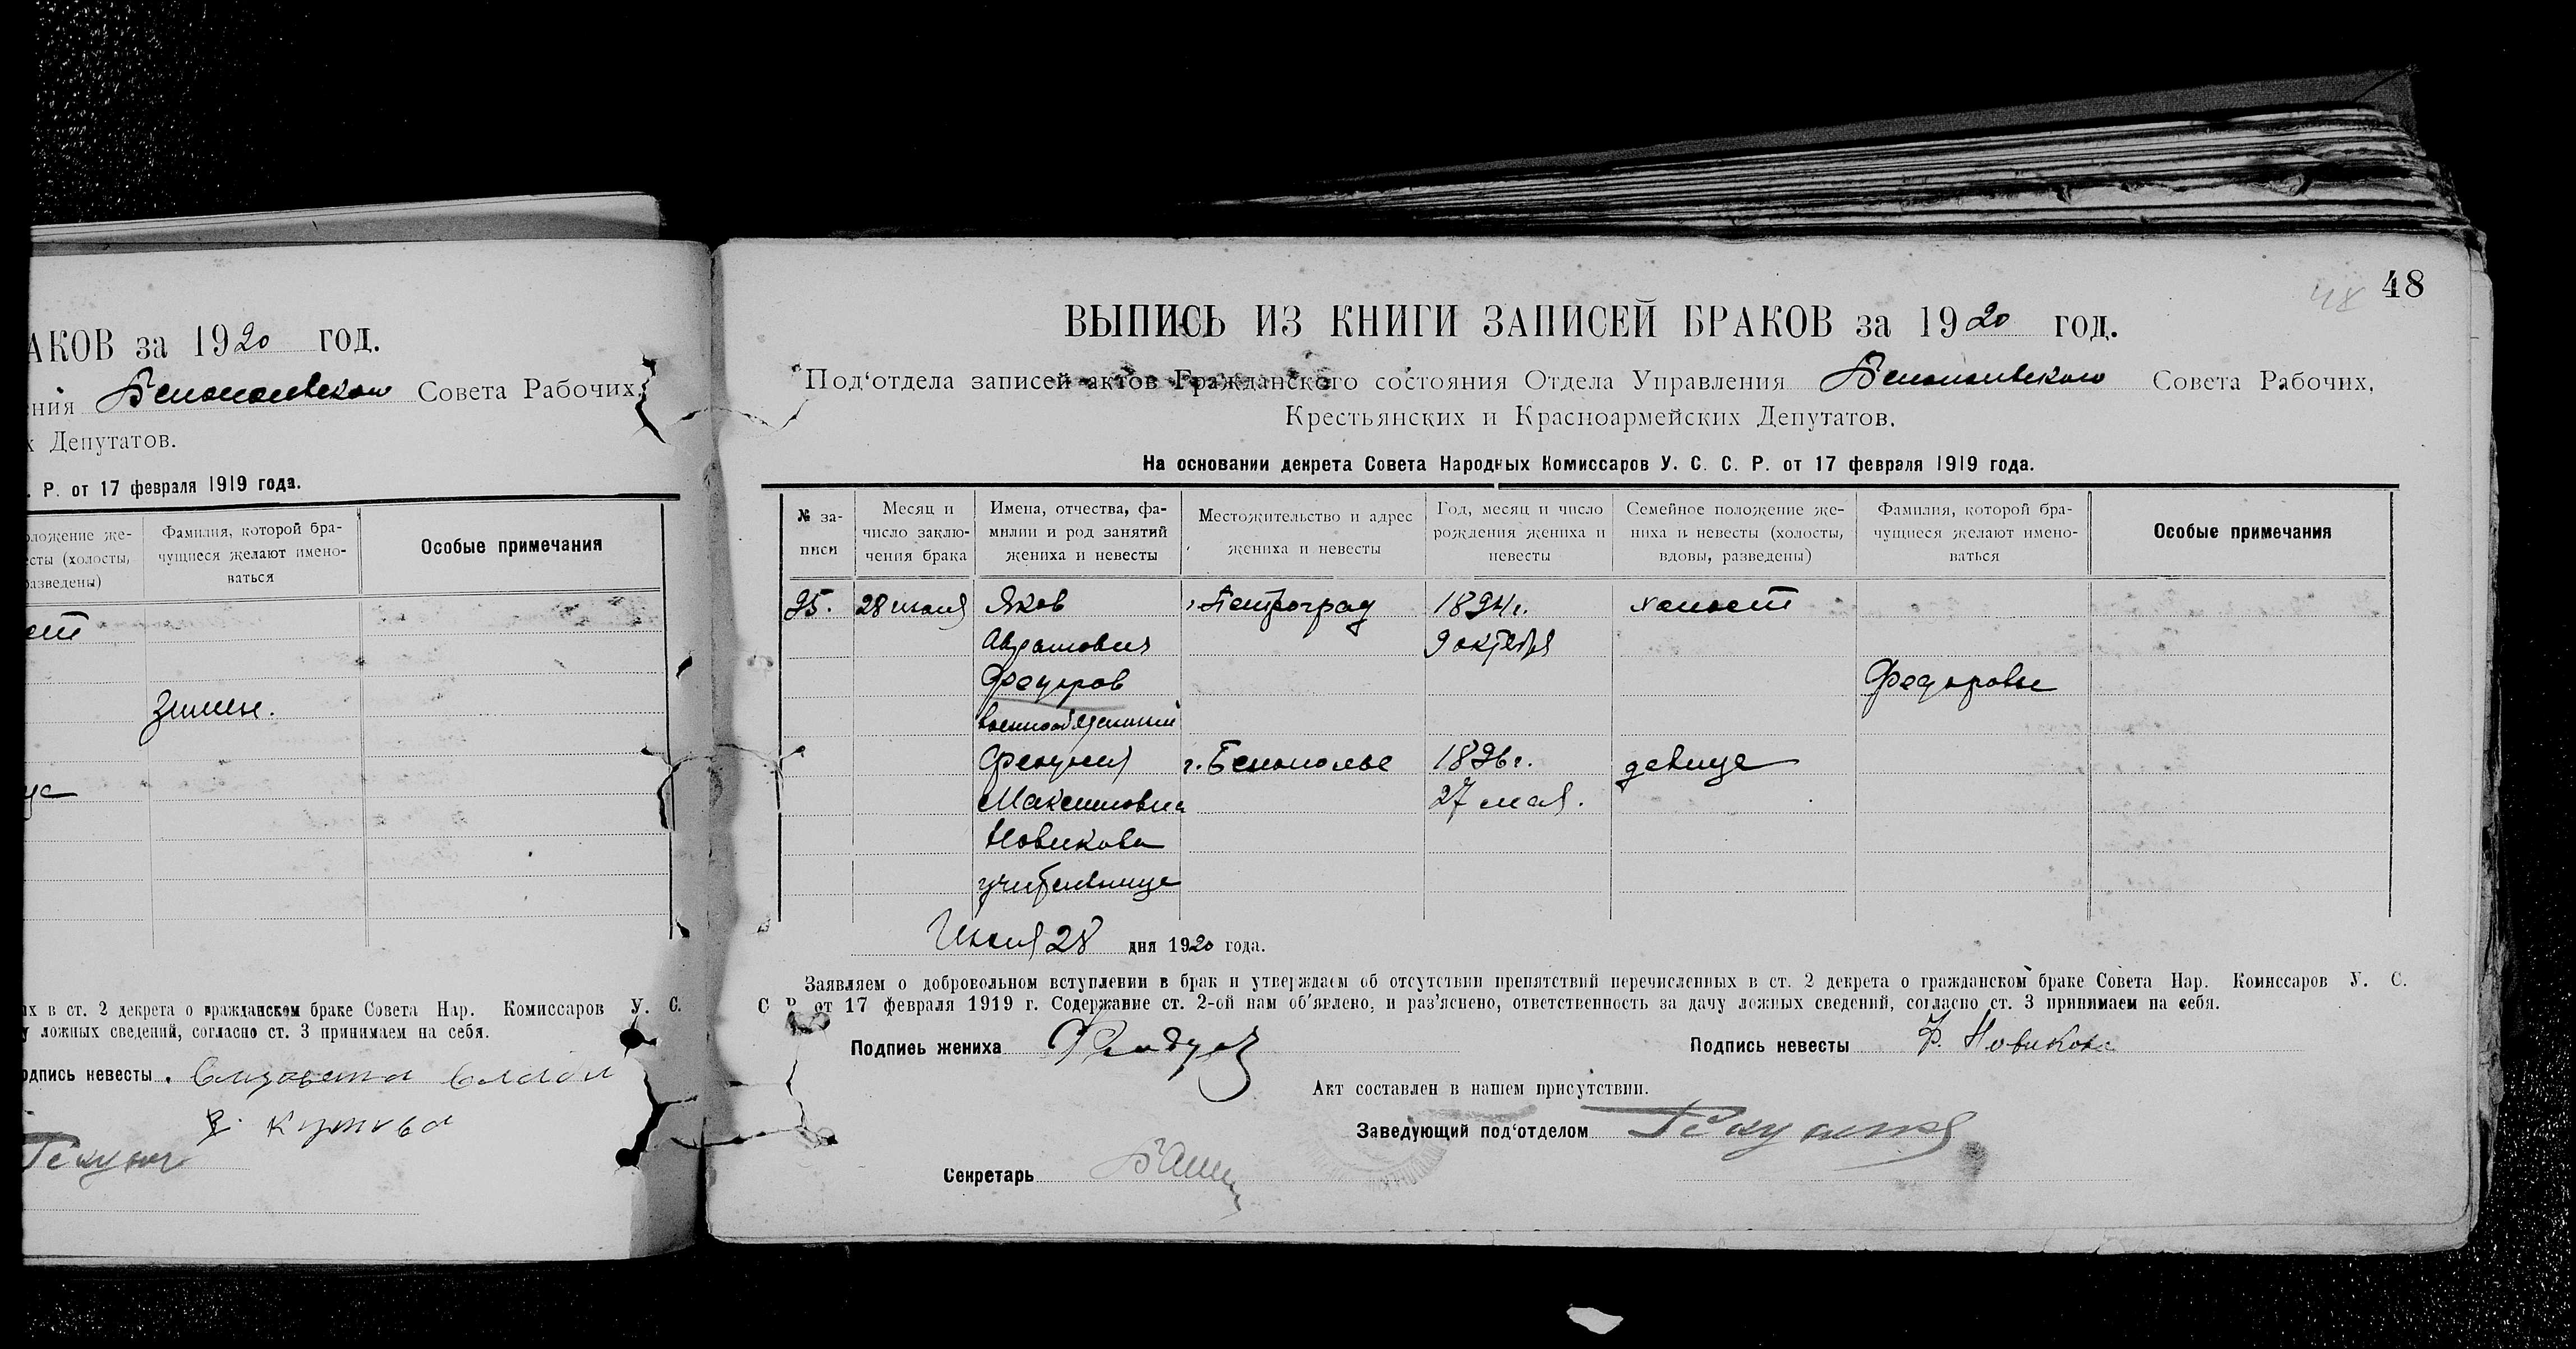 АКОВ за 1920 год.
ния Белопольского Совета Рабочих,
х Депутатов.
. Р. от 17 февраля 1919 года.
оложение же-
есты (холосты,
разведены)
Фамилия, которой бра-
чущиеся желают имено-
ваться
Особые примечания
ст
Зимин.
ца
ых в ст. 2 декрета о гражданском браке Совета Нар. Комиссаров У. С.
у ложных сведений, согласно ст. 3 принимаем на себя.
одпись невесты
48
48
ВЫПИСЬ ИЗ КНИГИ ЗАПИСЕЙ БРАКОВ за 1920 год.
Под‘отдела записей актов Гражданского состояния Отдела Управления Белопольского Совета Рабочих,
Крестьянских и Красноармейских Депутатов.
На основании декрета Совета Народных Комиссаров У. С. С. Р. от 17 февраля 1919 года.
№ за-
писи
Месяц и
число заклю-
чения брака
Имена, отчества, фа-
милии и род занятий
жениха и невесты
Местожительство и адрес
жениха и невесты
Год, месяц и число
рождения жениха и
невесты
Семейное положение же-
ниха и невесты (холосты,
вдовы, разведены)
Фамилия, которой бра-
чущиеся желают имено-
ваться
Особые примечания
95. 28 июля Яков Петроград 1894г. холост
Абрамович 9 октября
Федоров Федоровы
военнообязанный
Феодосия г. Белополье 1896г. девица
Максимовна 27 мая.
Новикова
учительница
Июля 28 дня 1920 года.
Заявляем о добровольном вступлении в брак и утверждаем об отсутствии препятствий перечисленных в ст. 2 декрета о гражданском браке Совета Нар. Комиссаров У. С.
С. Р. от 17 февраля 1919 г. Содержание ст. 2-ой нам об‘явлено, и раз‘яснено, ответственность за дачу ложных сведений, согласно ст. 3 принимаем на себя.
Подпись жениха
Подпись невесты Ф. Новикова
Акт составлен в нашем присутствии.
Заведующий под‘отделом
Секретарь